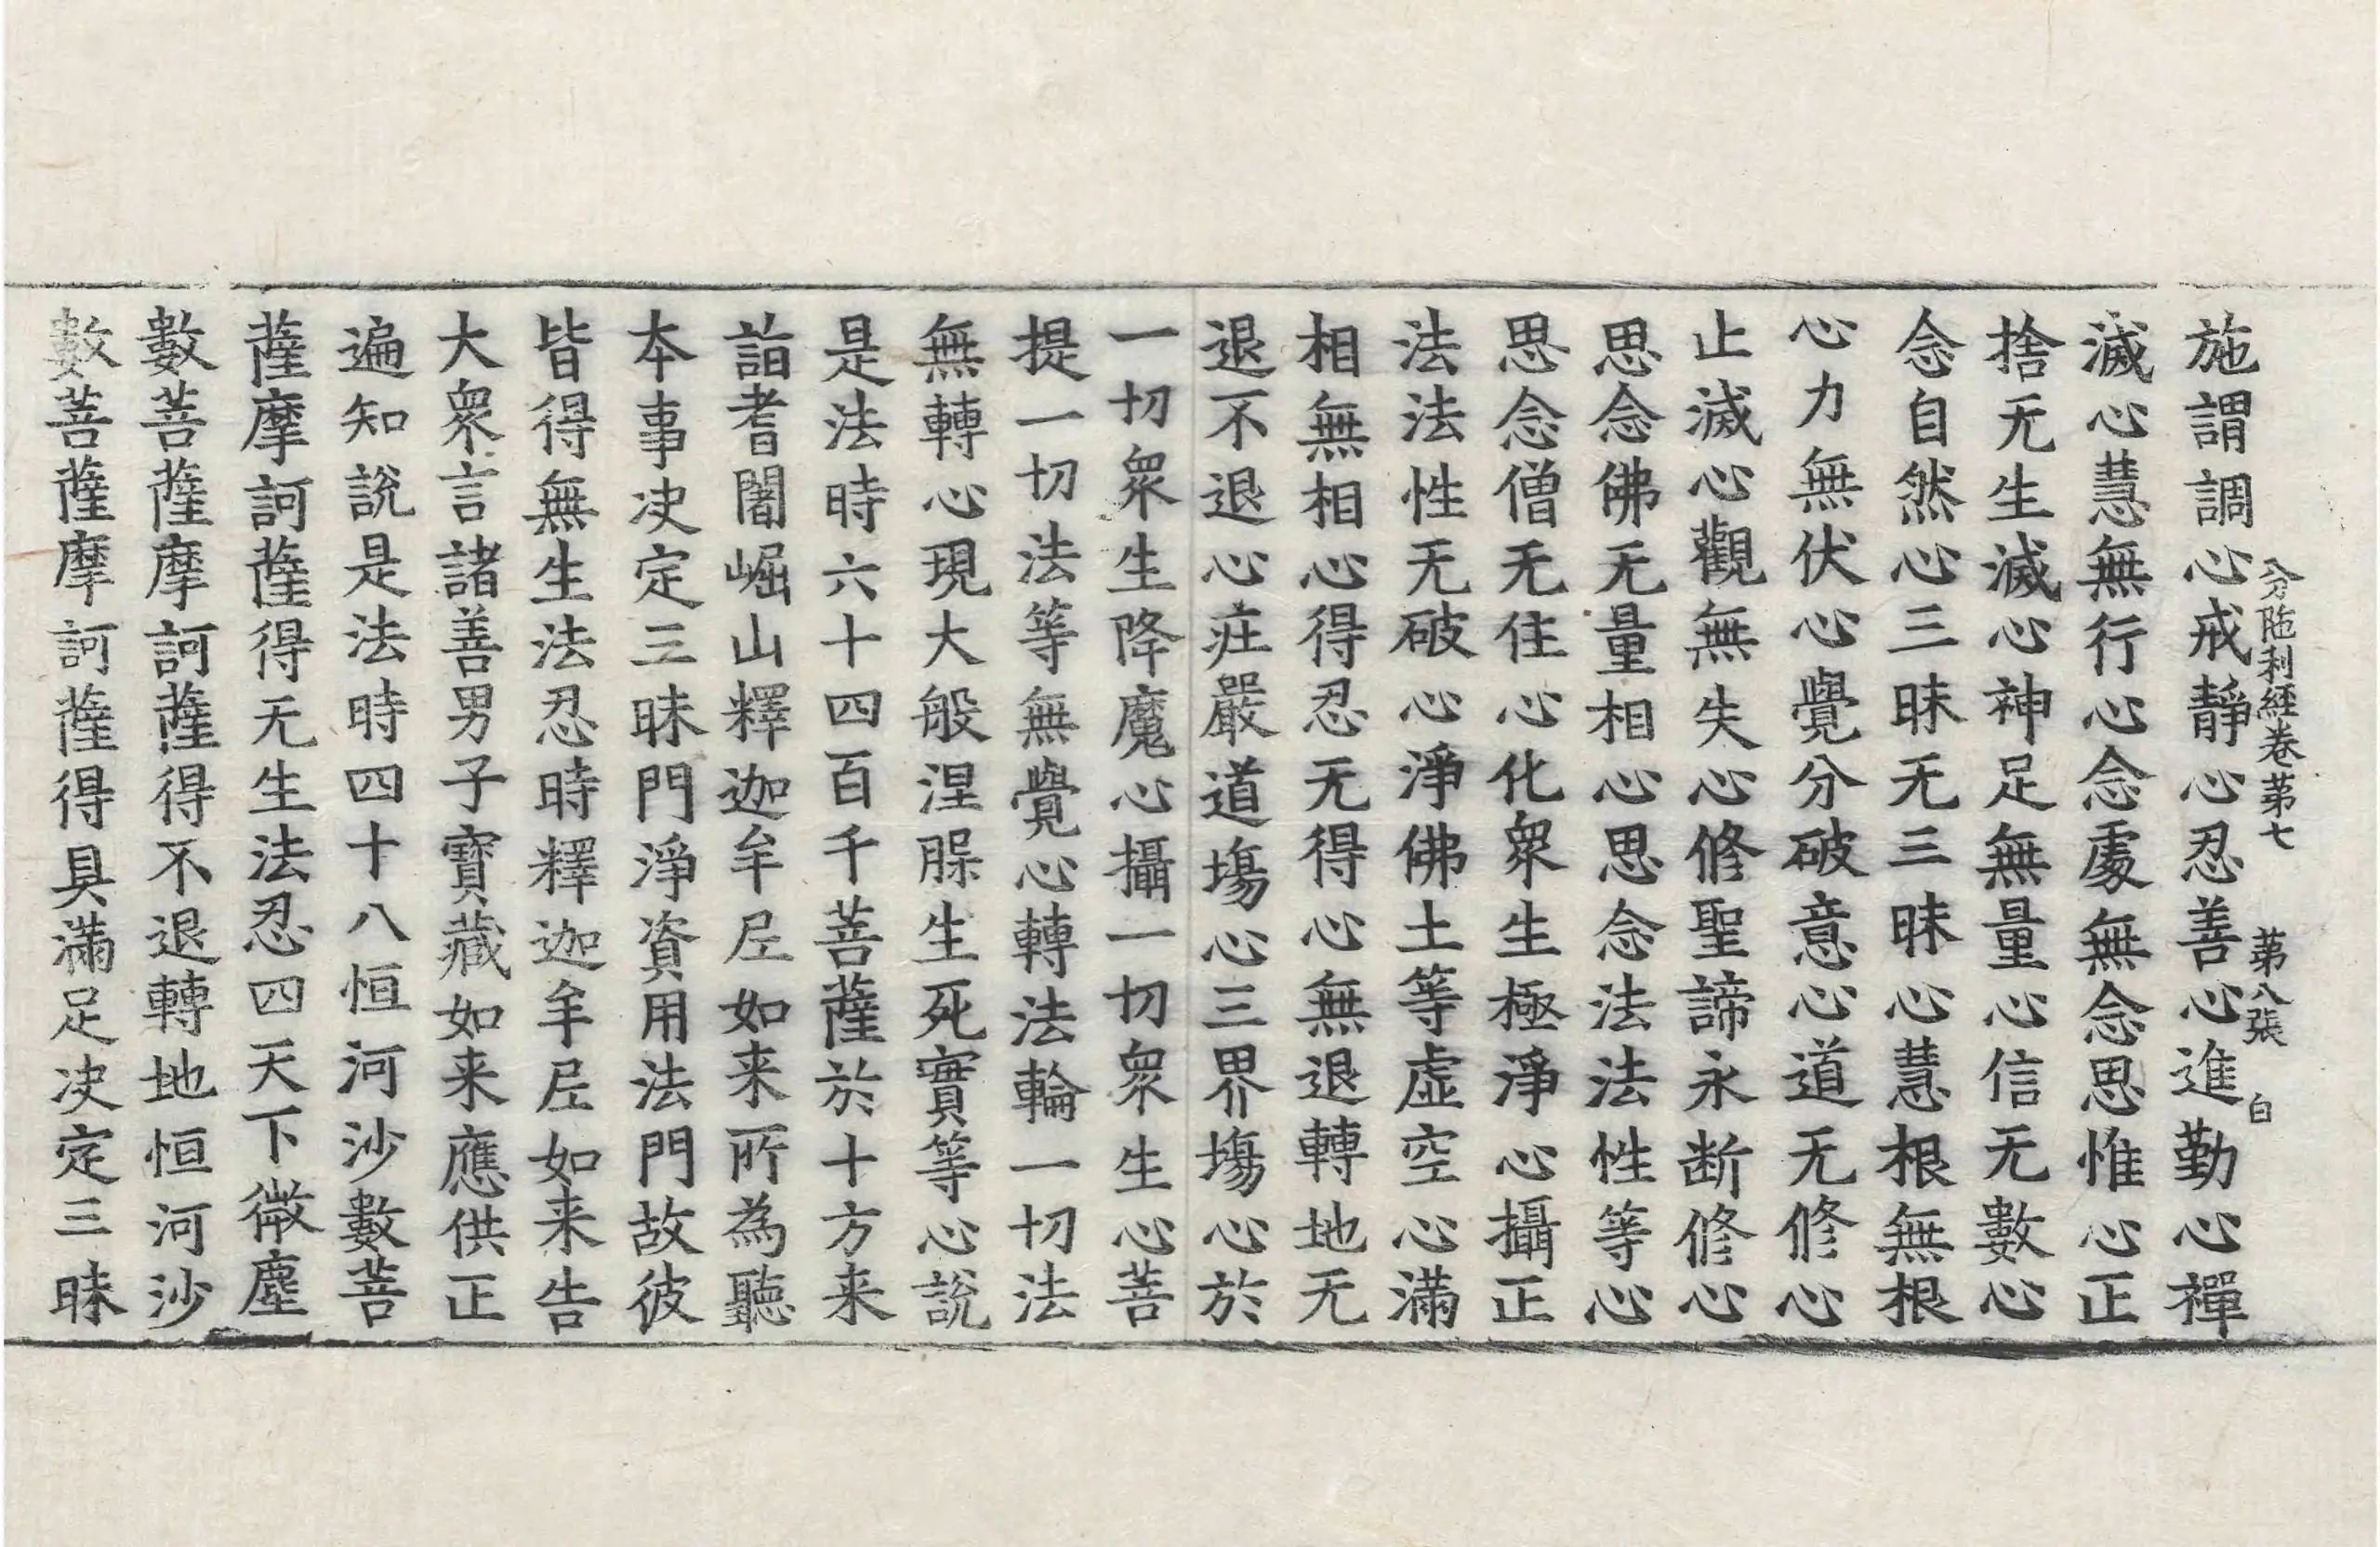 分陁利經卷苐七 苐八張 白
施謂調心戒靜心忍善心進勤心禪
滅心慧無行心念處無念思惟心正
捨无生滅心神足無量心信无數心
念自然心三昧无三昧心慧根無根
心力無伏心覺分破意心道无修心
止滅心觀無失心修聖諦永断修心
思念佛无量相心思念法法性等心
思念僧无住心化衆生極淨心攝正
法法性无破心淨佛土等虛空心滿
相無相心得忍无得心無退轉地无
退不退心莊嚴道塲心三界塲心於
一切衆生降魔心攝一切衆生心菩
提一切法等無覺心轉法輪一切法
無轉心現大般涅槃生死實等心說
是法時六十四百千菩薩於十方来
詣耆闍崛山釋迦牟𡰱如来所為聽
本事决定三昧門淨資用法門故彼
皆得無生法忍時釋迦牟𡰱如来告
大衆言諸善男子寶藏如来應供正
遍知說是法時四十八恒河沙數菩
薩摩訶薩得无生法忍四天下微塵
數菩薩摩訶薩得不退轉地恒河沙
數菩薩摩訶薩得具滿足决定三昧